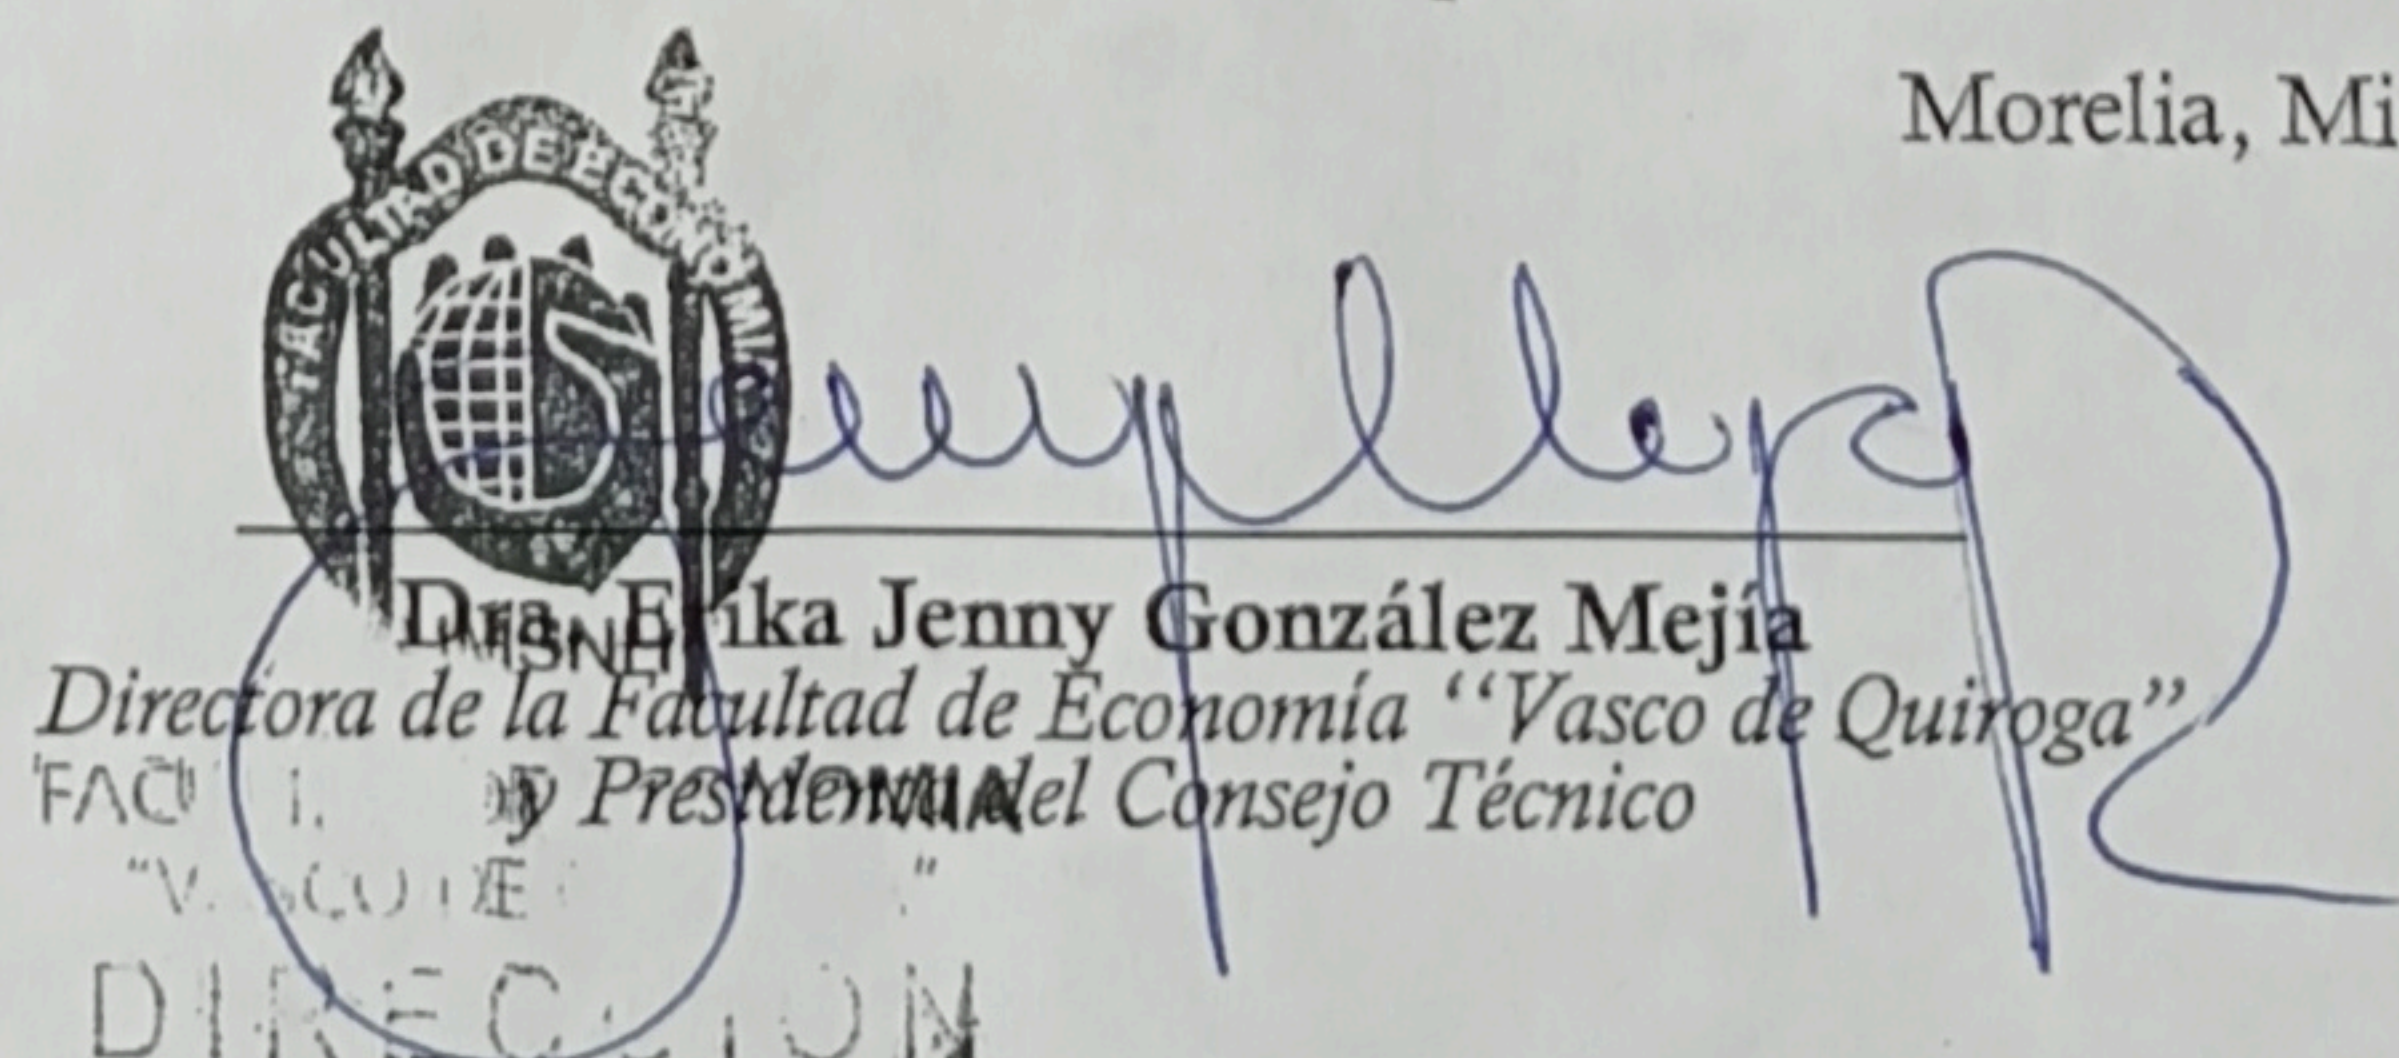 Morelia, Mi
FACULTAD DE ECONOMIA
Dra. Erika Jenny González Mejía
UMSNH
Directora de la Facultad de Economía ‘‘Vasco de Quiroga’’
y Presidenta del Consejo Técnico
"VASCO DE "
DIRECCION